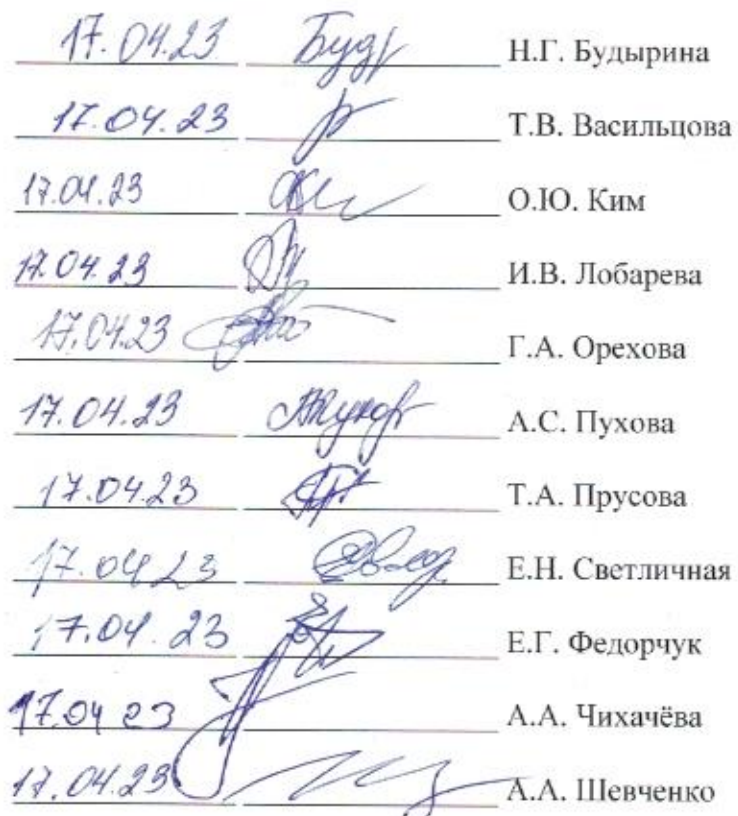 17.04.23 Н.Г. Будырина
17.04.23 Т.В. Васильцова
17.04.23 О.Ю. Ким
17.04.23 И.В. Лобарева
17.04.23 Г.А. Орехова
17.04.23 А.С. Пухова
17.04.23 Т.А. Прусова
17.04 23 Е.Н. Светличная
17.04.23 Е.Г. Федорчук
17.04 23 А.А. Чихачёва
17.04.23 А.А. Шевченко